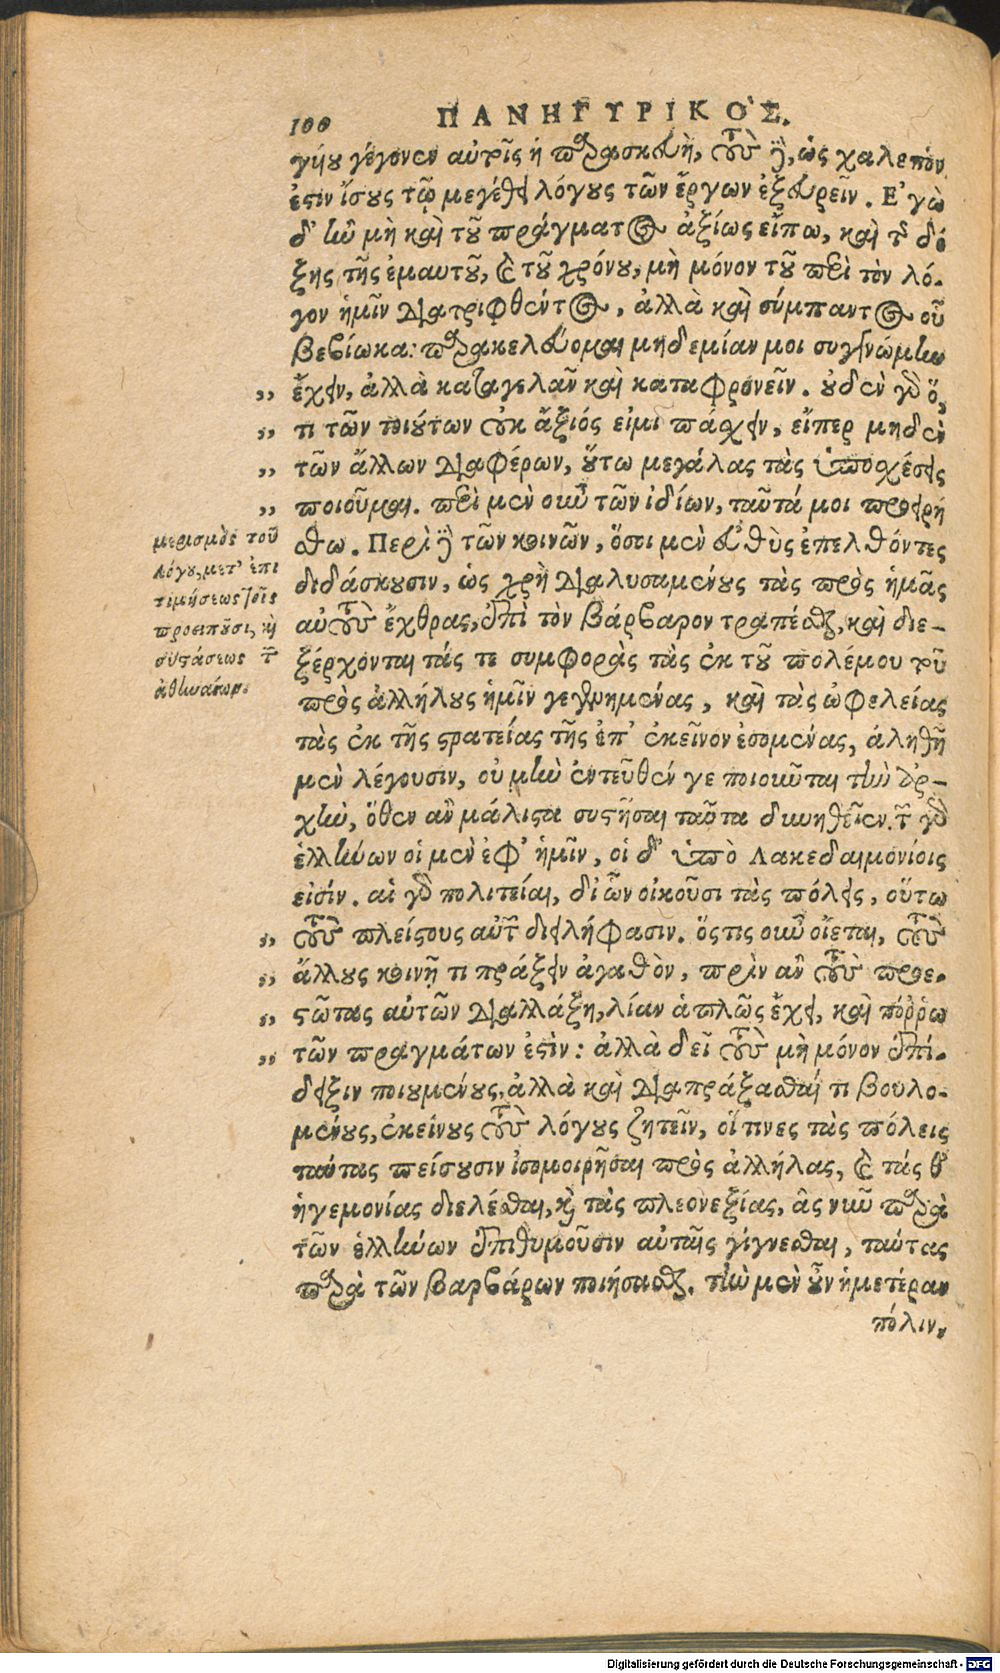 100 ΠΑΝΗΓΥΡΙΚΟΣ.
γήου γέγονεν αὐτοῖς ἡ παρασκευὴ, τοὺς δὲ, ὡς χαλεπόν
ἐστιν ἴσους τῷ μεγέθει λόγους τῶν ἔργων ἐξευρεῖν. Ἐγὼ
δ' ἢν μὴ καὶ τοῦ πράγματος ἀξίως εἴπω, καὶ τῆς δό-
ξης τῆς ἐμαυτοῦ, καὶ τοῦ χρόνου, μὴ μόνον τοῦ περὶ τὸν λό-
γον ἡμῖν διατριφθέντος, ἀλλὰ καὶ σύμπαντος οὗ
βεβίωκα: παρακελεύομαι μηδεμίαν μοι συγγνώμην
,, ἔχειν, ἀλλὰ καταγελᾶν καὶ καταφρονεῖν. οὐδὲν γὰρ ὅ,
,, τι τῶν τοιούτων οὐκ ἄξιός εἰμι πάσχειν, εἴπερ μηδὲν
,, τῶν ἄλλων διαφέρων, οὕτω μεγάλας τὰς ὑποσχέσεις
,, ποιοῦμαι. περὶ μὲν οὖν τῶν ἰδίων, ταῦτά μοι προειρή
σθω. Περὶ δὲ τῶν κοινῶν, ὅσοι μὲν εὐθὺς ἐπελθόντες
διδάσκουσιν, ὡς χρὴ διαλυσαμένους τὰς πρὸς ἡμᾶς
αὐτοὺς ἔχθρας, ἐπὶ τὸν βάρβαρον τραπέσθαι, καὶ διε-
ξέρχονται τάς τε συμφορὰς τὰς ἐκ τοῦ πολέμου τοῦ
πρὸς ἀλλήλους ἡμῖν γεγενημένας, καὶ τὰς ὠφελείας
τὰς ἐκ τῆς στρατείας τῆς ἐπ' ἐκεῖνον ἐσομένας, ἀληθῆ
μὲν λέγουσιν, οὐ μὴν ἐντεῦθέν γε ποιοῦνται τὴν ἀρ-
χὴν, ὅθεν ἂν μάλιστα συστῆσαι ταῦτα δυνηθεῖεν. τῶν γὰρ
ἑλλήνων οἱ μὲν ἐφ' ἡμῖν, οἱ δ' ὑπὸ Λακεδαιμονίοις
εἰσίν. αἱ γὰρ πολιτεῖαι, δι' ὧν οἰκοῦσι τὰς πόλεις, οὕτω
,, τοὺς πλείστους αὐτῶν διειλήφασιν. ὅστις οὖν οἴεται, τοὺς
,, ἄλλους κοινῇ τι πράξειν ἀγαθὸν, πρὶν ἂν τοὺς προε-
,, στῶτας αὐτῶν διαλλάξῃ, λίαν ἁπλῶς ἔχει, καὶ πόῤῥω
,, τῶν πραγμάτων ἐστίν: ἀλλὰ δεῖ τοὺς μὴ μόνον ἐπί-
δειξιν ποιουμένους, ἀλλὰ καὶ διαπράξασθαί τι βουλο-
μένους, ἐκείνους τοὺς λόγους ζητεῖν, οἵτινες τὰς πόλεις
ταύτας πείσουσιν ἰσομοιρῆσαι πρὸς ἀλλήλας, καὶ τάς θ'
ἡγεμονίας διελέσθαι, καὶ τὰς πλεονεξίας, ἃς νῦν παρὰ
τῶν ἑλλήνων ἐπιθυμοῦσιν αὐταῖς γίγνεσθαι, ταύτας
παρὰ τῶν βαρβάρων ποιήσασθαι. τὴν μὲν οὖν ἡμετέραν
πόλιν,
μερισμὸς τοῦ
λόγου, μετ' ἐπι
τιμήσεως τοῖς
προειποῦσι, καὶ
συστάσεως τῶν
ἀθηναίων.
Digitalisierung gefördert durch die Deutsche Forschungsgemeinschaft - DFG